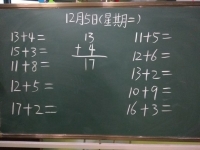 12月5日(星期二)
13+4=
15+3=
11+8=
12+5=
17+2=
13
+ 4
17
11+5=
12+6=
13+2=
10+9=
16+3=